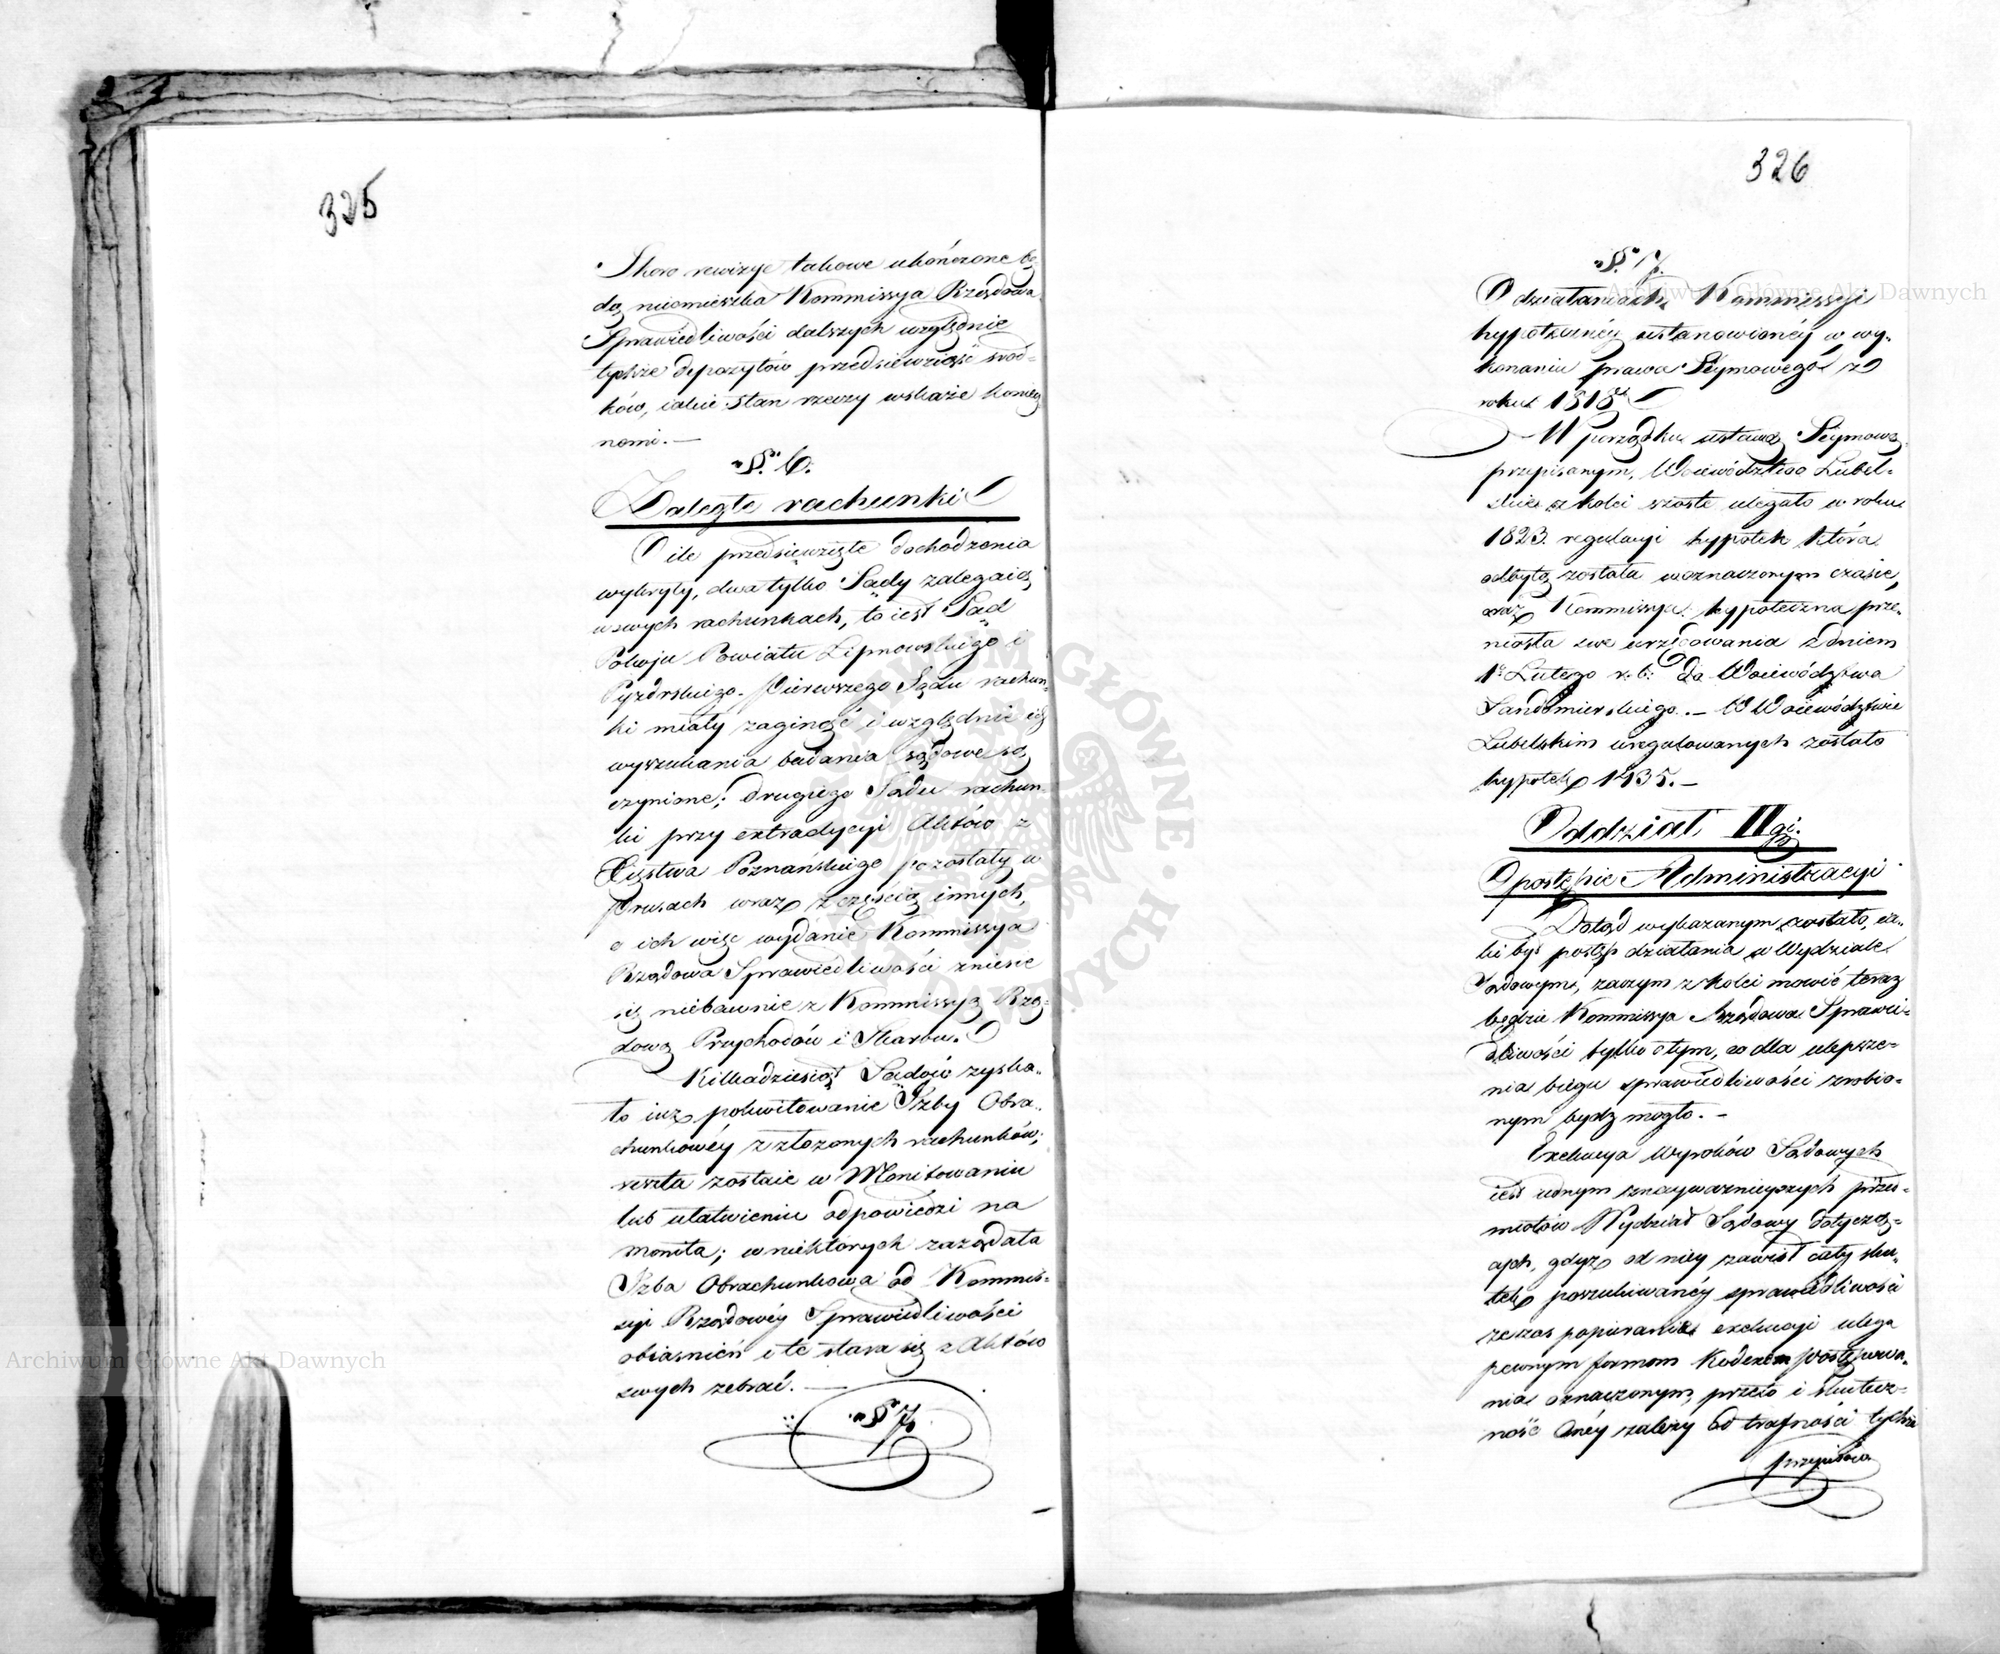 325
Skoro rewizye takowe ukończone bę-
dą, niemieszka Kommissya Rządowa
Sprawiedliwości dalszych względnie
tychże depozytów przedsiewziąść środ-
ków, iakie stan rzeczy wskaże koniecz
nemi. —
§. 6.
Zaległe rachunki
O ile przedsięwzięte dochodzenia
wykryły, dwa tylko Sądy zalegaią
w swych rachunkach, to iest Sąd
Pokoju Powiatu Lipnowskiego i
Pyzdrskiego. Pierwszego Sądu rachun-
ki miały zaginąć i względnie ich
wyszukania badania sądowe są
czynione; drugiego Sądu rachun-
ki przy extradycyi Aktów z
Xięstwa Poznańskiego pozostały w
Prusach wraz z częścią innych,
o ich więc wydanie Kommissya
Rządowa Sprawiedliwości zniesie
się niebawnie z Kommissyą Rzą-
dową Przychodów i Skarbu.
Kilkadziesiąt Sądów zyska-
ło iuż pokwitowanie Izby Obra-
chunkowéy z złożonych rachunków;
reszta zostaie w Monitowaniu
lub ułatwieniu odpowiedzi na
monita; w niektórych zażądała
Izba Obrachunkowa od Kommis-
syi Rządowéy Sprawiedliwości
obiaśnień i te stara się z Aktów
swych zebrać. —
§ 7.
326
§. 7.
O działaniach Kommissyi
hypotecznéy ustanowionéy w wy-
konaniu prawa Seymowego z
roku 1818
W porządku ustawą Seymową
przepisanym, Woiewództwo Lubel-
skie z kolei szóste ulegało w roku
1823. regulacyi hypotek która
odbytą została w oznaczonym czasie,
oraz Kommissya hypoteczna prze-
niosła swe urzędowania z dniem
1 Lutego r. b. do Woiewództwa
Sandomierskiego. — W Woiewództwie
Lubelskim uregulowanych zostało
hypotek 1435. —
Oddział II gi.
O postępie Administracyi
Dotąd wykazanym zostało, ia-
ki był postęp działania w Wydziale
Sądowym, zaczym z kolei mowić teraz
będzie Kommissya Rządowa Sprawie-
dliwości tylko o tym, co dla ulepsze-
nia biegu sprawiedliwości zrobio-
nym bydź mogło. —
Exekucya Wyroków Sądowych
iest iednym z naywaznieyszych przed-
miotów Wydział Sądowy dotyczą-
cych, gdyż od niey zawisł cały sku-
tek poszukiwanéy sprawiedliwości
ze zaś popieranie exekucyi ulega
pewnym formom Kodexem postępowa-
nia oznaczonym, przeto i skutecz-
ność onéy zależy od trafności tychże
przepisów
Archiwum Główne Akt Dawnych
Archiwum Główne Akt Dawnych
ARCHIWUM GŁÓWNE AKT DAWNYCH